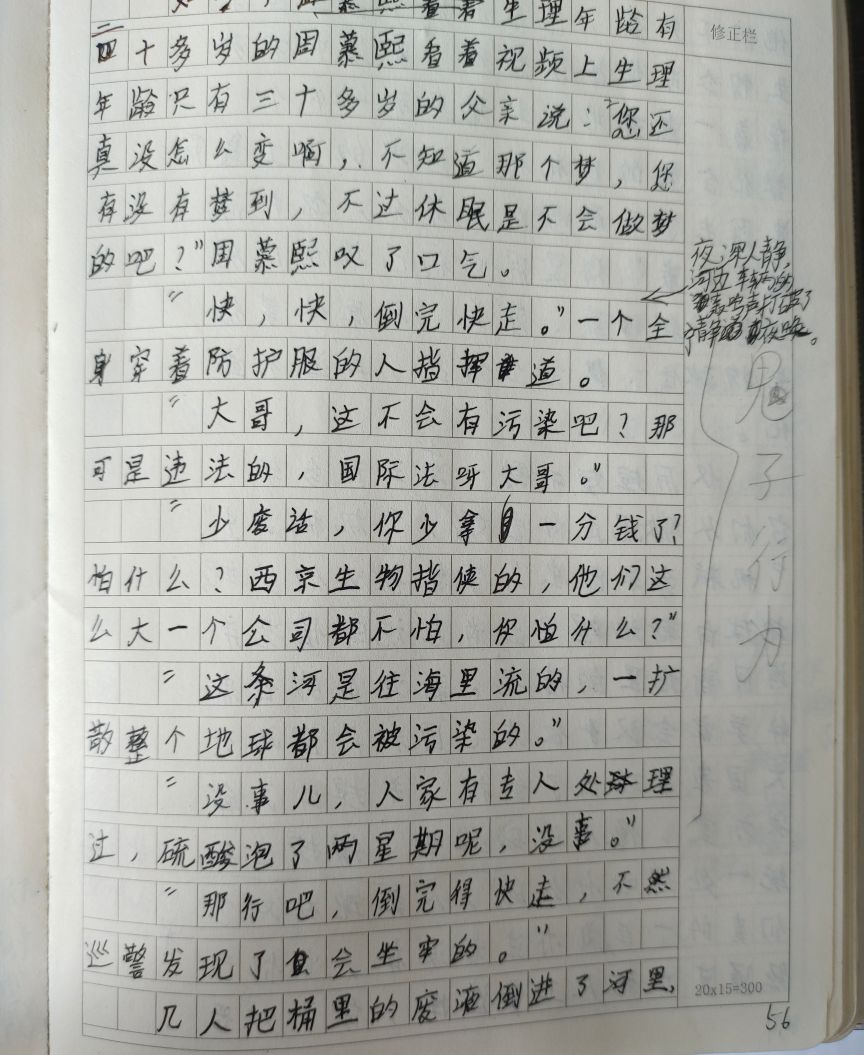 生理年龄有
二
四十多岁的周慕熙看着视频上生理
年龄只有三十多岁的父亲说：“您还
真没怎么变啊，不知道那个梦，您
有没有梦到，不过休眠是不会做梦
的吧？”周慕熙叹了口气。
“快，快，倒完快走。”一个全
身穿着防护服的人指挥道。
“大哥，这不会有污染吧？那
可是违法的，国际法呀大哥。”
“少废话，你少拿一分钱了？
怕什么？西京生物指使的，他们这
么大一个公司都不怕，你怕什么？”
“这条河是往海里流的，一扩
散整个地球都会被污染的。”
“没事儿，人家有专人处理
过，硫酸泡了两星期呢，没事。”
“那行吧，倒完得快走，不然
巡警发现了会坐牢的。”
几人把桶里的废液倒进了河里，
修正栏
夜深人静，
河边车辆的
轰鸣声打破了
鬼子行为
20x15=300
56